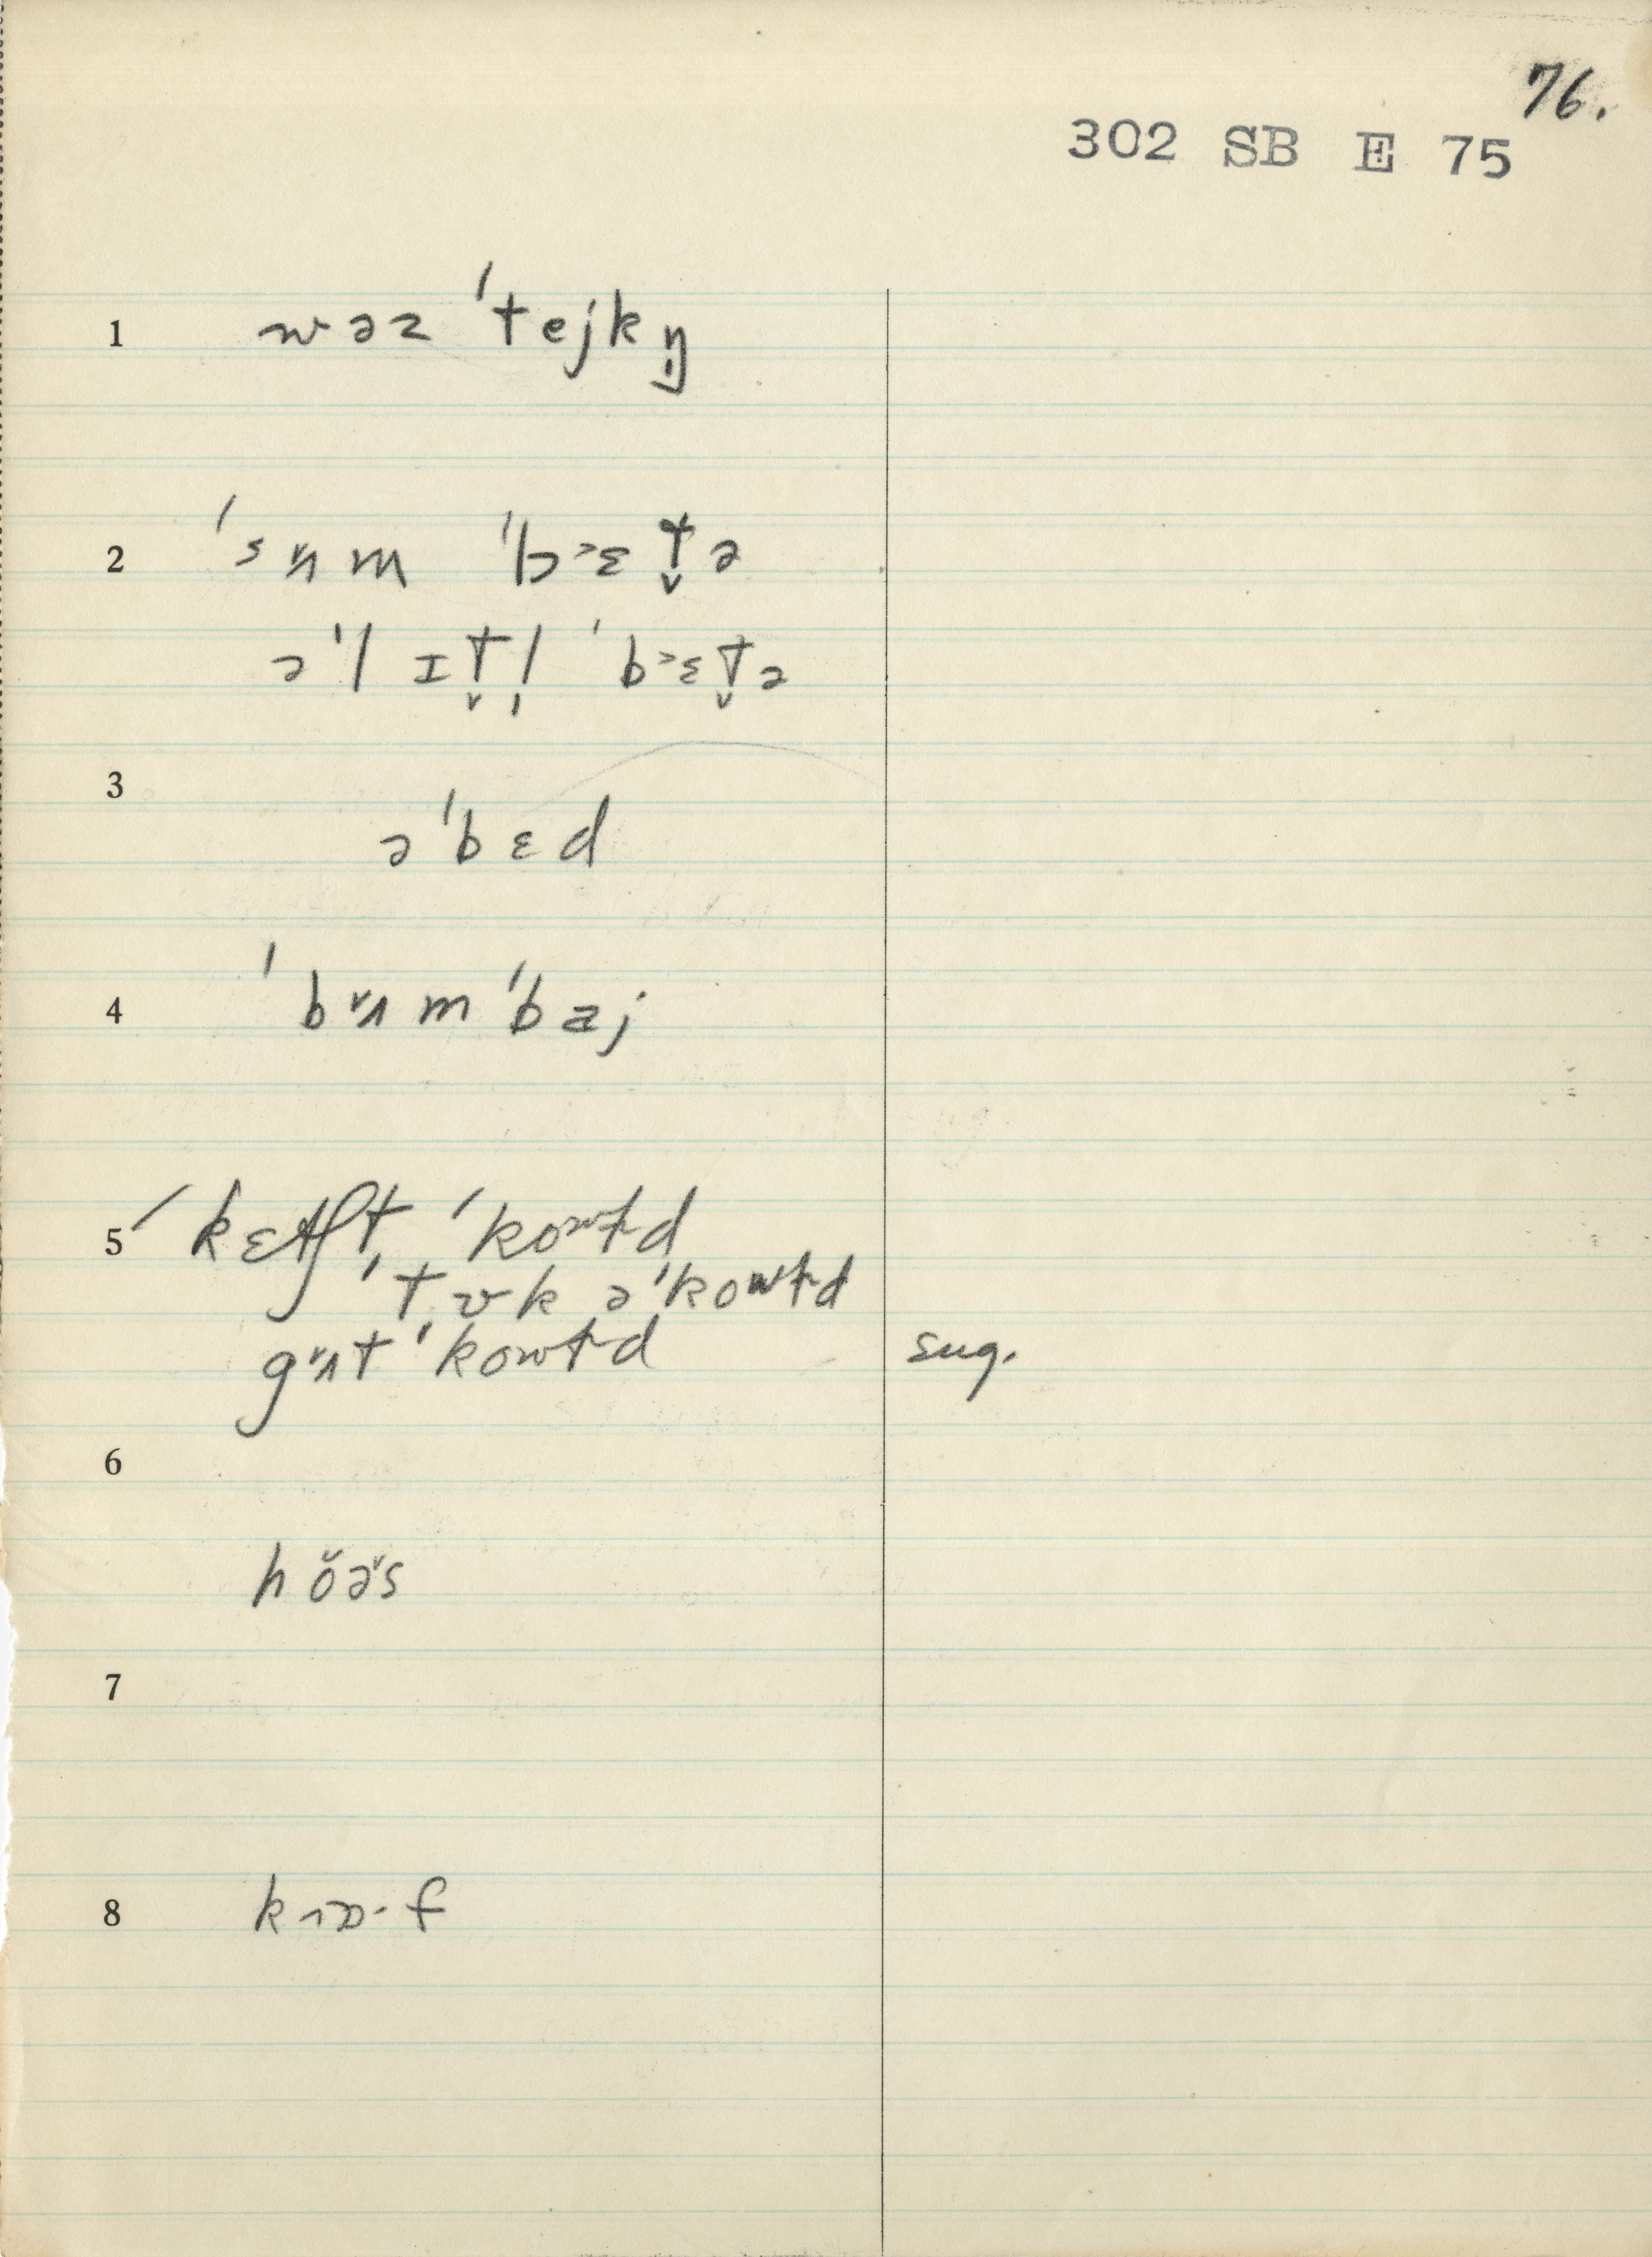 76.
302 SB E 75
1 wəz ˈtejkŋ̩
2 ˈsʌ̌m ˈb˃ɛt̬ə
əˈlɪt̬l̩ ˈb˃ɛt̬ə
3
əˈbɛd
4 ˈbʌ̌mˈbaj
5 ˈkɛtʃt ˈkowɫd
ˈtʊk əˈkowɫd
gʌ̌t ˈkowɫd sug.
6
hŏə̌s
7
8